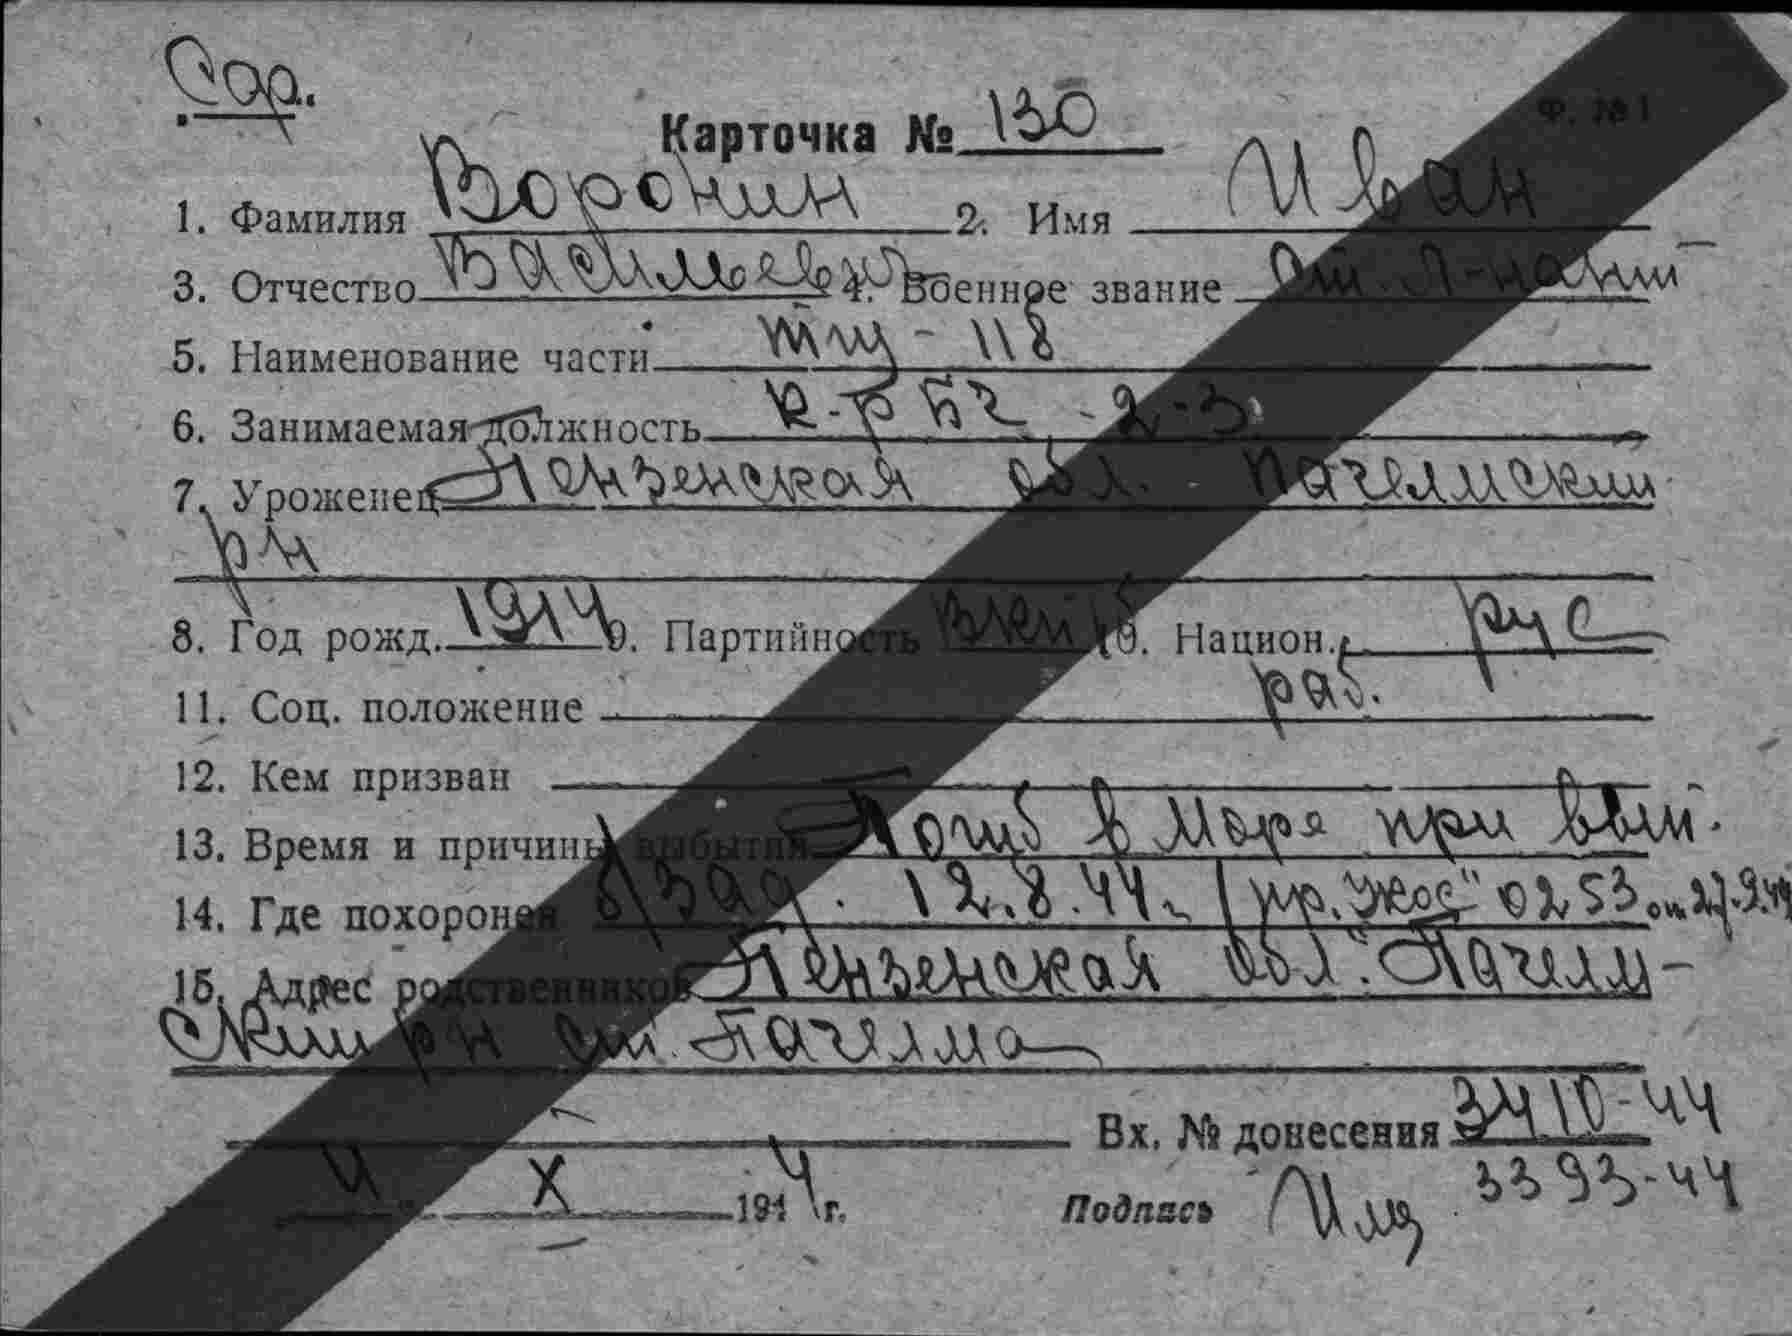 Сар.
Ф. №1
Карточка № 130
1. Фамилия Воронин 2. Имя Иван
3. Отчество Васильевич 4. Военное звание Ст. л-нант
5. Наименование части ТЩ - 118
6. Занимаемая должность к-р БЧ - 2-3
7. Уроженец Пензенская обл. Пачелмский
р н
8. Год рожд. 1914 9. Партийность ВКП/б 10. Национ. рус
11. Соц. положение раб.
12. Кем призван
13. Время и причины выбытия Погиб в море при вып.
14. Где похоронен б/зад. 12.8.44 г. /пр. 0253 от 27.9.44
15. Адрес родственников Пензенская обл. Пачелм-
ский р н ст. Пачелма
Вх. № донесения 3410-44
3393-44
4 X 1944 г. Подпись